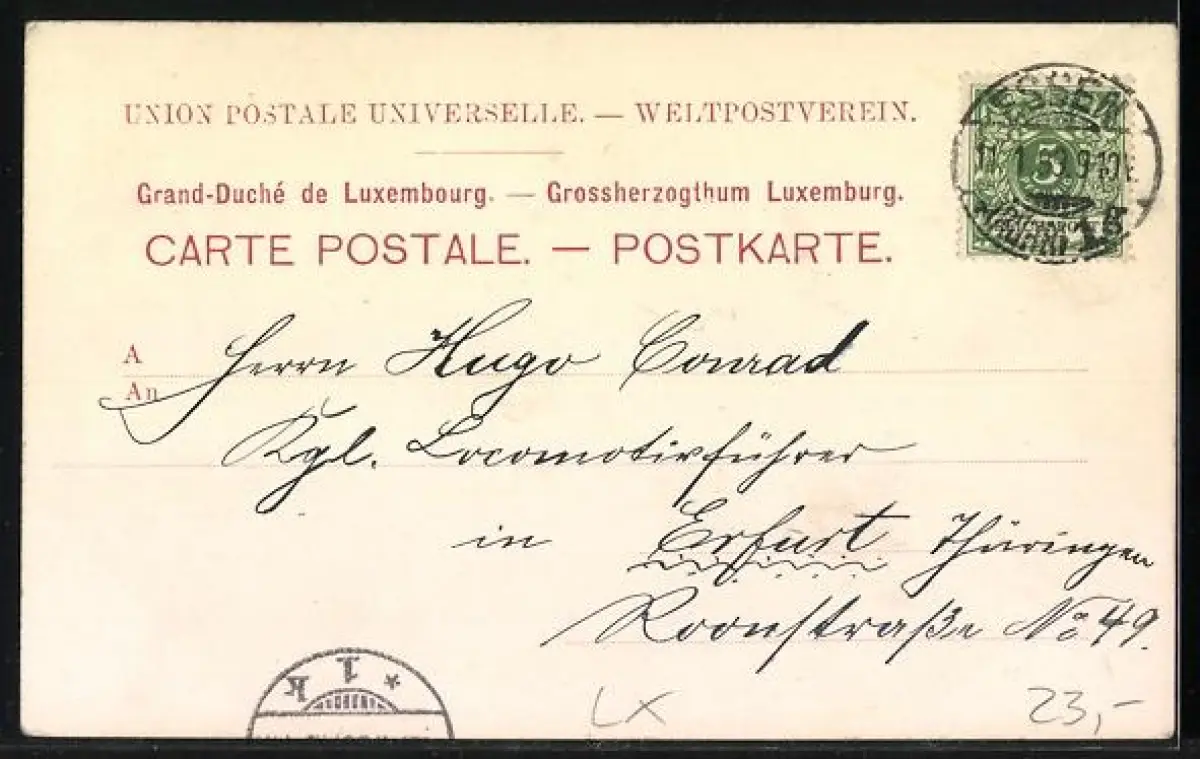 UNION POSTALE UNIVERSELLE. — WELTPOSTVEREIN.
Grand-Duché de Luxembourg. — Grossherzogthum Luxemburg.
CARTE POSTALE. — POSTKARTE.
ESSEN
5
A
An
Herrn Hugo Conrad
Kgl. Locomotivführer
in Erfurt Thüringen
Roonstraße No 49.
* 1 k
LX
23,-